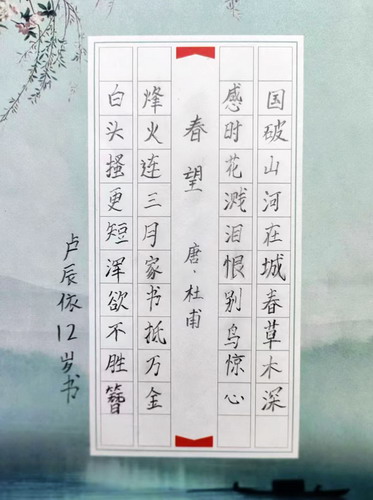 国破山河在城春草木深
感时花溅泪恨别鸟惊心
春望 唐·杜甫
烽火连三月家书抵万金
白头搔更短浑欲不胜簪
卢辰依12岁书